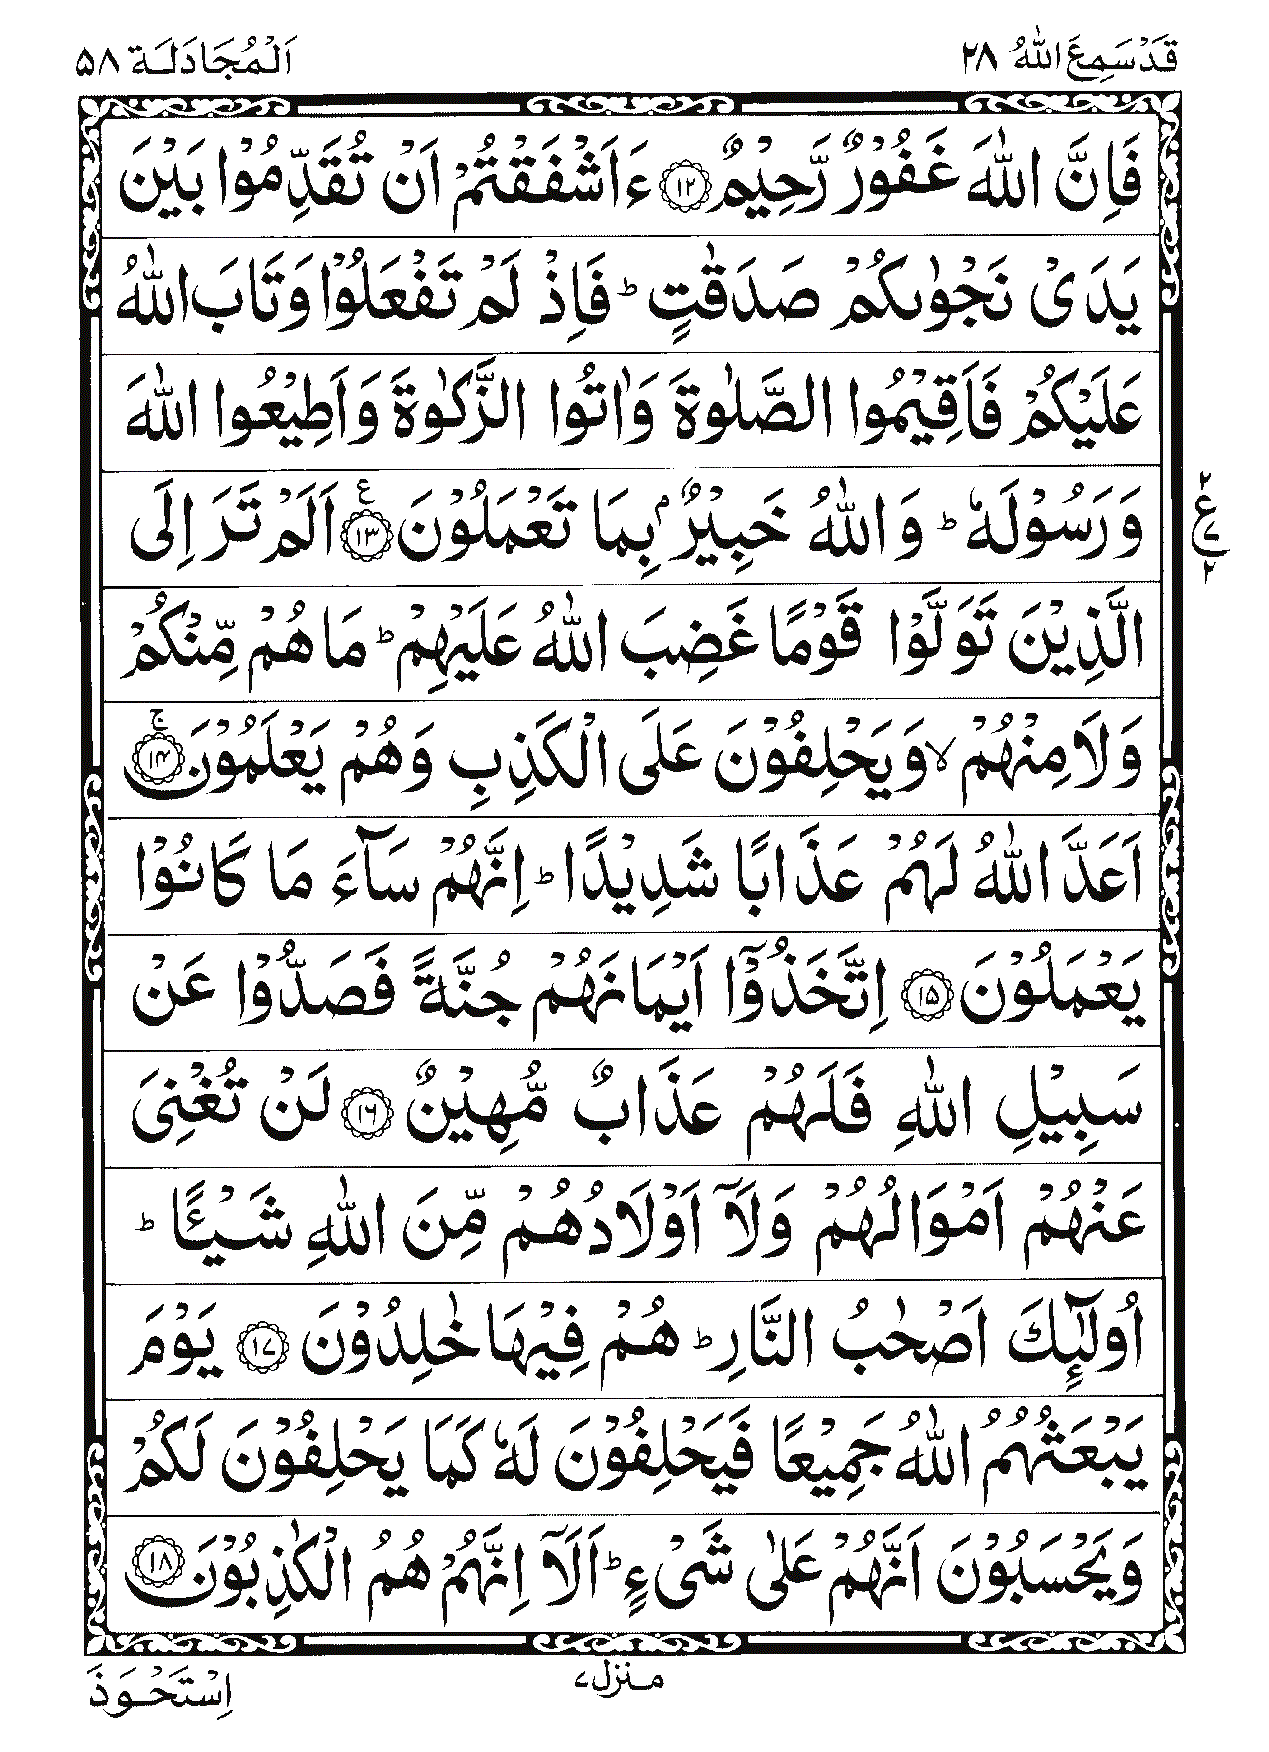 قَدْ سَمِعَ اللّٰهُ ٢٨
اَلْمُجَادَلَة ٥٨
فَاِنَّ اللّٰهَ غَفُوْرٌ رَّحِيْمٌ ١٢ ءَاَشْفَقْتُمْ اَنْ تُقَدِّمُوْا بَيْنَ
يَدَىْ نَجْوٰىكُمْ صَدَقٰتٍ ؕ فَاِذْ لَمْ تَفْعَلُوْا وَتَابَ اللّٰهُ
عَلَيْكُمْ فَاَقِيْمُوا الصَّلٰوةَ وَاٰتُوا الزَّكٰوةَ وَاَطِيْعُوا اللّٰهَ
وَرَسُوْلَهٗ ؕ وَاللّٰهُ خَبِيْرٌۢ بِمَا تَعْمَلُوْنَ ١٣ ع اَلَمْ تَرَ اِلَى
٢ ع ٧ ٢
الَّذِيْنَ تَوَلَّوْا قَوْمًا غَضِبَ اللّٰهُ عَلَيْهِمْ ؕ مَا هُمْ مِّنْكُمْ
وَلَا مِنْهُمْ ۙ وَيَحْلِفُوْنَ عَلَى الْكَذِبِ وَهُمْ يَعْلَمُوْنَ ١٤ ۚ
اَعَدَّ اللّٰهُ لَهُمْ عَذَابًا شَدِيْدًا ؕ اِنَّهُمْ سَآءَ مَا كَانُوْا
يَعْمَلُوْنَ ١٥ اِتَّخَذُوْۤا اَيْمَانَهُمْ جُنَّةً فَصَدُّوْا عَنْ
سَبِيْلِ اللّٰهِ فَلَهُمْ عَذَابٌ مُّهِيْنٌ ١٦ لَنْ تُغْنِىَ
عَنْهُمْ اَمْوَالُهُمْ وَلَاۤ اَوْلَادُهُمْ مِّنَ اللّٰهِ شَيْـًٔا ؕ
اُولٰٓئِكَ اَصْحٰبُ النَّارِ ؕ هُمْ فِيْهَا خٰلِدُوْنَ ١٧ يَوْمَ
يَبْعَثُهُمُ اللّٰهُ جَمِيْعًا فَيَحْلِفُوْنَ لَهٗ كَمَا يَحْلِفُوْنَ لَكُمْ
وَيَحْسَبُوْنَ اَنَّهُمْ عَلٰى شَىْءٍ ؕ اَلَاۤ اِنَّهُمْ هُمُ الْكٰذِبُوْنَ ١٨
منزل ٧
اِسْتَحْوَذَ